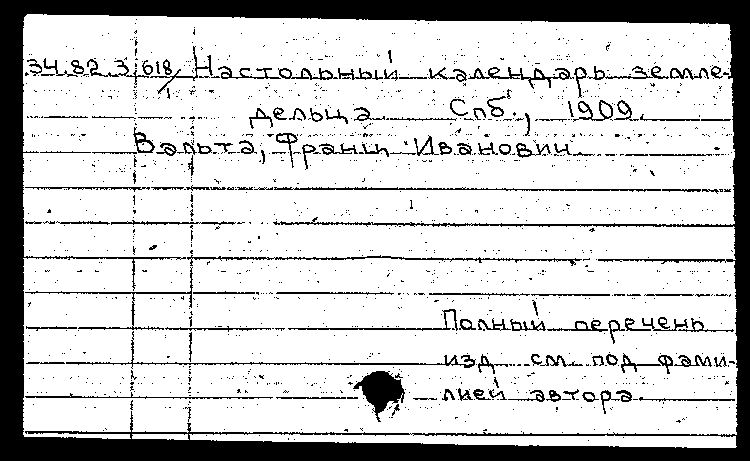 34.82.3.618/1 Настольный календарь земле-
дельца. Спб., 1909.
Вальта, Франц Иванович.
Полный перечень
изд. см. под фами-
лией автора.